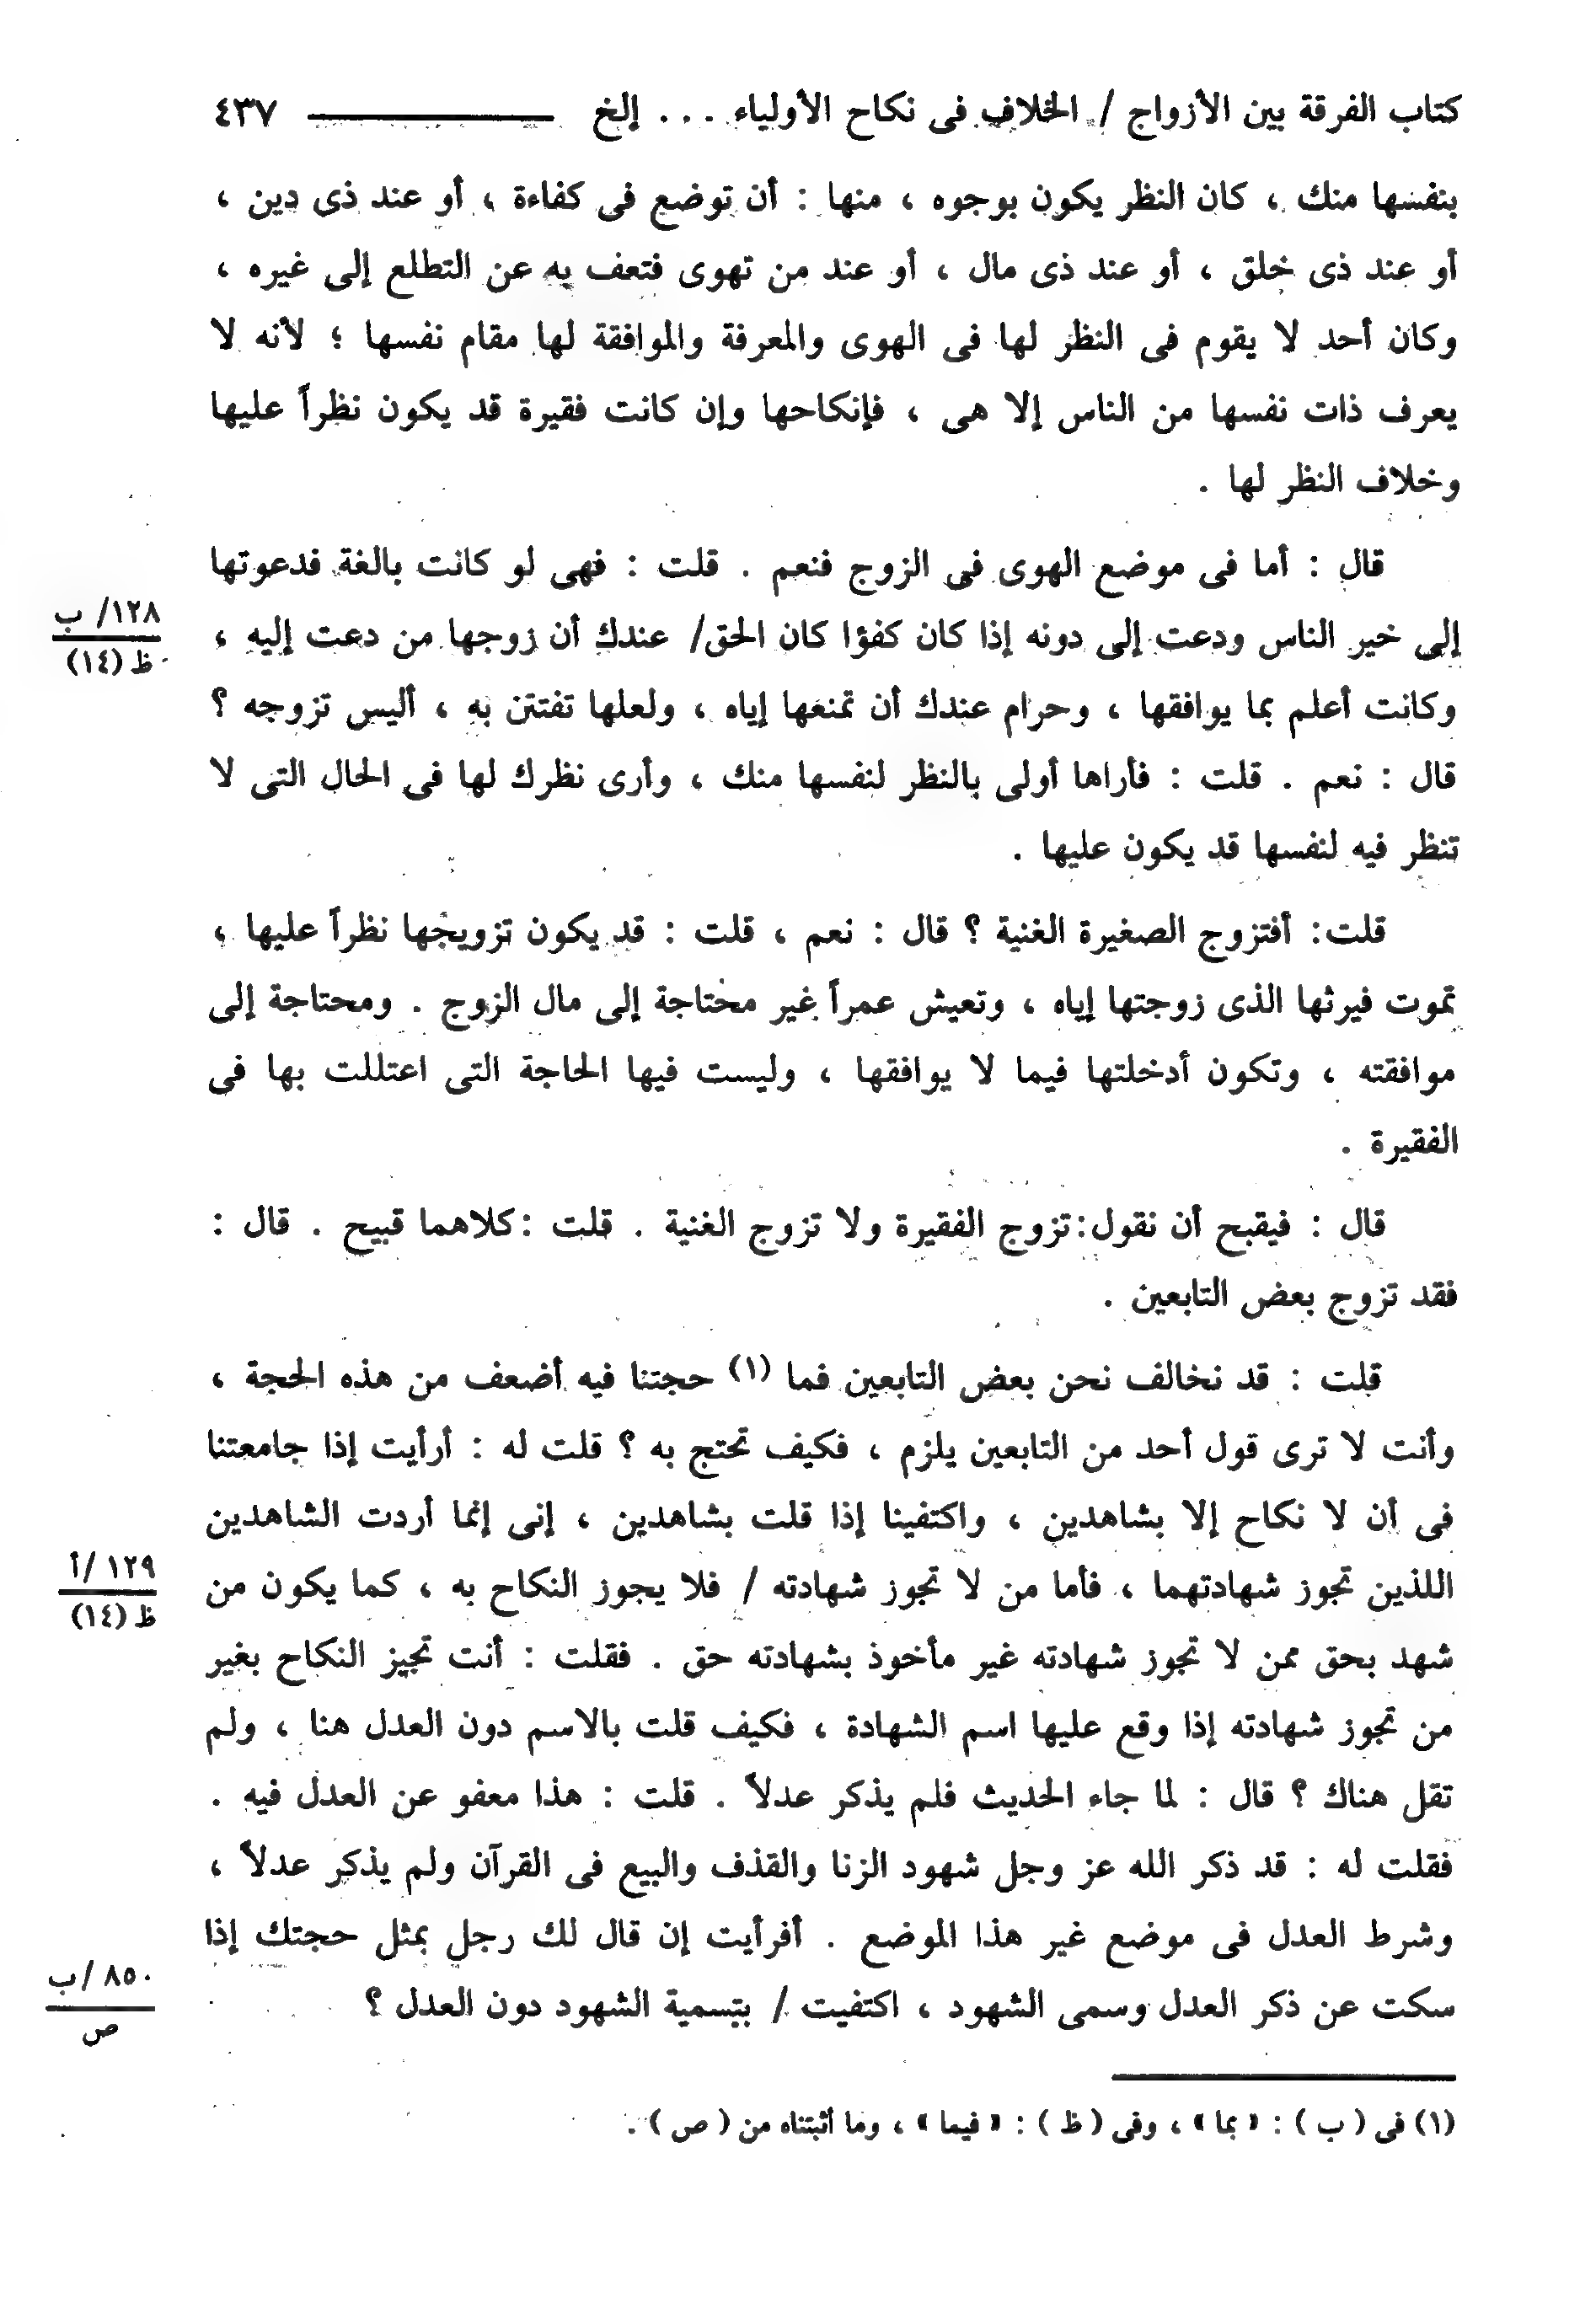 كتاب الفرقة بين الأزواج / الخلاف فى نكاح الأولياء . . . إلخ ٤٣٧
بنفسها منك ، كان النظر يكون بوجوه ، منها : أن توضع فى كفاءة ، أو عند ذى دين ،
أو عند ذى خلق ، أو عند ذى مال ، أو عند من تهوى فتعف به عن التطلع إلى غيره ،
وكان أحد لا يقوم فى النظر لها فى الهوى والمعرفة والموافقة لها مقام نفسها ؛ لأنه لا
يعرف ذات نفسها من الناس إلا هى ، فإنكاحها وإن كانت فقيرة قد يكون نظراً عليها
وخلاف النظر لها .
قال : أما فى موضع الهوى فى الزوج فنعم . قلت : فهى لو كانت بالغة فدعوتها
إلى خير الناس ودعت إلى دونه إذا كان كفؤا كان الحق/ عندك أن زوجها من دعت إليه ،
١٢٨/ ب
ظ (١٤)
وكانت أعلم بما يوافقها ، وحرام عندك أن تمنعها إياه ، ولعلها تفتتن به ، أليس تزوجه ؟
قال : نعم . قلت : فأراها أولى بالنظر لنفسها منك ، وأرى نظرك لها فى الحال التى لا
تنظر فيه لنفسها قد يكون عليها .
قلت : أفتزوج الصغيرة الغنية ؟ قال : نعم ، قلت : قد يكون تزويجها نظراً عليها ،
تموت فيرثها الذى زوجتها إياه ، وتعيش عمراً غير محتاجة إلى مال الزوج . ومحتاجة إلى
موافقته ، وتكون أدخلتها فيما لا يوافقها ، وليست فيها الحاجة التى اعتللت بها فى
الفقيرة .
قال : فيقبح أن نقول : تزوج الفقيرة ولا تزوج الغنية . قلت : كلاهما قبيح . قال :
فقد تزوج بعض التابعين .
قلت : قد نخالف نحن بعض التابعين فما (١) حجتنا فيه أضعف من هذه الحجة ،
وأنت لا ترى قول أحد من التابعين يلزم ، فكيف تحتج به ؟ قلت له : أرأيت إذا جامعتنا
فى أن لا نكاح إلا بشاهدين ، واكتفينا إذا قلت بشاهدين ، إنى إنما أردت الشاهدين
اللذين تجوز شهادتهما ، فأما من لا تجوز شهادته / فلا يجوز النكاح به ، كما يكون من
١٢٩ /أ
ظ (١٤)
شهد بحق ممن لا تجوز شهادته غير مأخوذ بشهادته حق . فقلت : أنت تجيز النكاح بغير
من تجوز شهادته إذا وقع عليها اسم الشهادة ، فكيف قلت بالاسم دون العدل هنا ، ولم
تقل هناك ؟ قال : لما جاء الحديث فلم يذكر عدلاً . قلت : هذا معفو عن العدل فيه .
فقلت له : قد ذكر الله عز وجل شهود الزنا والقذف والبيع فى القرآن ولم يذكر عدلاً ،
وشرط العدل فى موضع غير هذا الموضع . أفرأيت إن قال لك رجل بمثل حجتك إذا
سكت عن ذكر العدل وسمى الشهود ، اكتفيت / بتسمية الشهود دون العدل ؟
٨٥٠ /ب
ص
(١) فى ( ب ) : « بما » ، وفى ( ظ ) : « فيما » ، وما أثبتناه من ( ص ) .